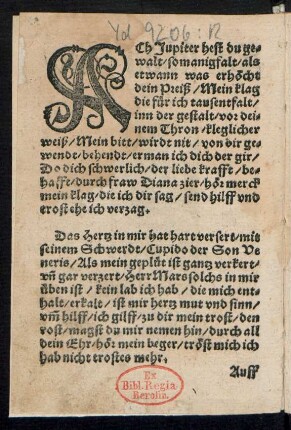 Yd 9206:R
ACh Jupiter hest du ge⸗
walt/ so manigfalt/ als
etwann was erhöcht
dein Preiß/ Mein klag
die für ich tausentfalt/
inn der gestalt/ vor dei⸗
nem Thron/ kleglicher
weiß/ Mein bitt/ wirdt nit/ von dir ge⸗
wendt/ behendt/ erman ich dich der gir/
Do dich schwerlich/ der liebe krafft/ be⸗
hafft/ durch fraw Diana zier/ hör merck
mein klag/ die ich dir sag/ send hilff vnd
trost ehe ich verzag.
Das Hertz in mir hat hart versert/ mit
seinem Schwerdt/ Cupido der Son Ve⸗
neris/ Als mein geplüt ist gantz verkert/
vñ gar verzert/ Herr Mars solchs in mir
üben ist/ kein lab ich hab/ die mich ent⸗
halt/ erkalt/ ist mir hertz mut vnd sinn/
vm̃ hilff/ ich gilff/ zu dir mein trost/ den
rost/ magst du mir nemen hin/ durch all
dein Ehr/ hör mein beger/ tröst mich ich
hab nicht trostes mehr.
Auff
Ex
Bibl. Regia
Berolin.